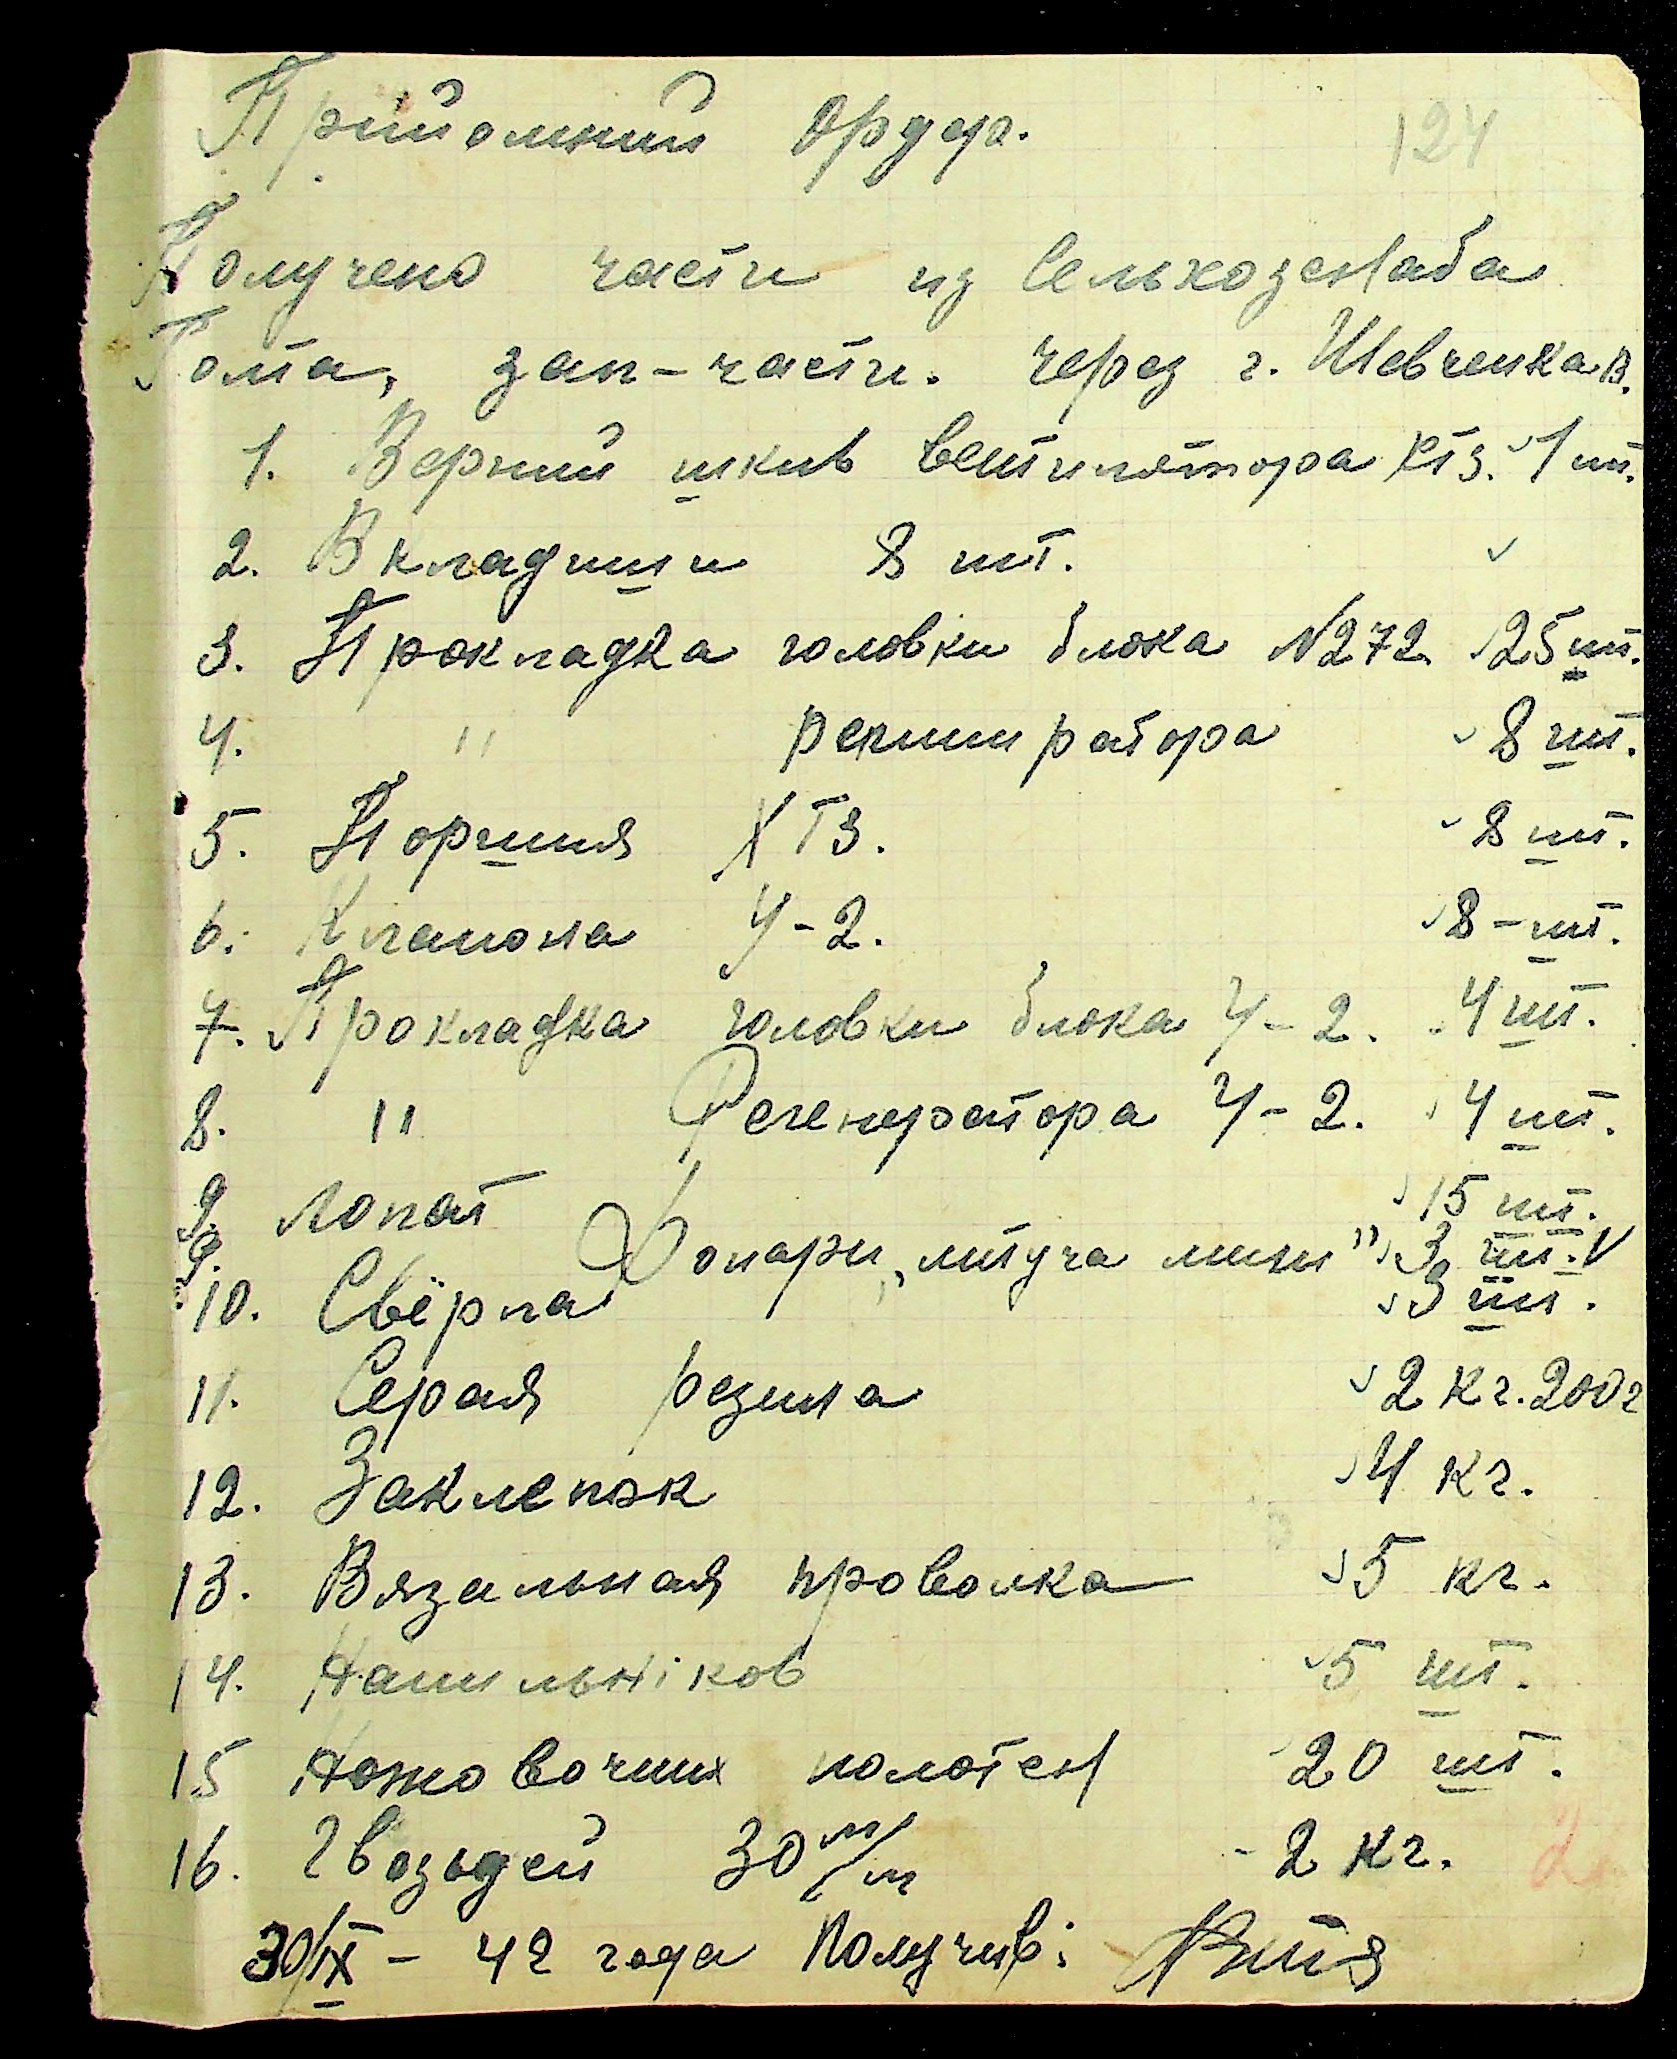 Прийомний Ордер.
124
Получено части из Сельхозснаба
зап-части. через г. Шевченка В.
1. Верний шкив вентилятора ХТЗ. 1 шт.
2. Вкладиши 8 шт.
3. Прокладка головки блока N272 25 шт.
4. " 8 шт.
5. Поршня ХТЗ. 8 шт.
6. Клапона У-2. 8-шт.
7. Прокладка головки блока У-2. 4 шт.
8. " Регенератора У-2. 4 шт.
9. Лопат 15 шт.
9. Фонари „литуча миши" 3 шт. V
10. Свёрла 3 шт.
11. Серая резина 2 кг. 200 г
12. Заклепок 4 кг.
13. Вязальная проволка 5 кг.
14. Напильніков 5 шт.
15 Ножовочних полотен 20 шт.
16. Гвоздей 30 м/м - 2 кг.
2
30/IX - 42 года Получив: